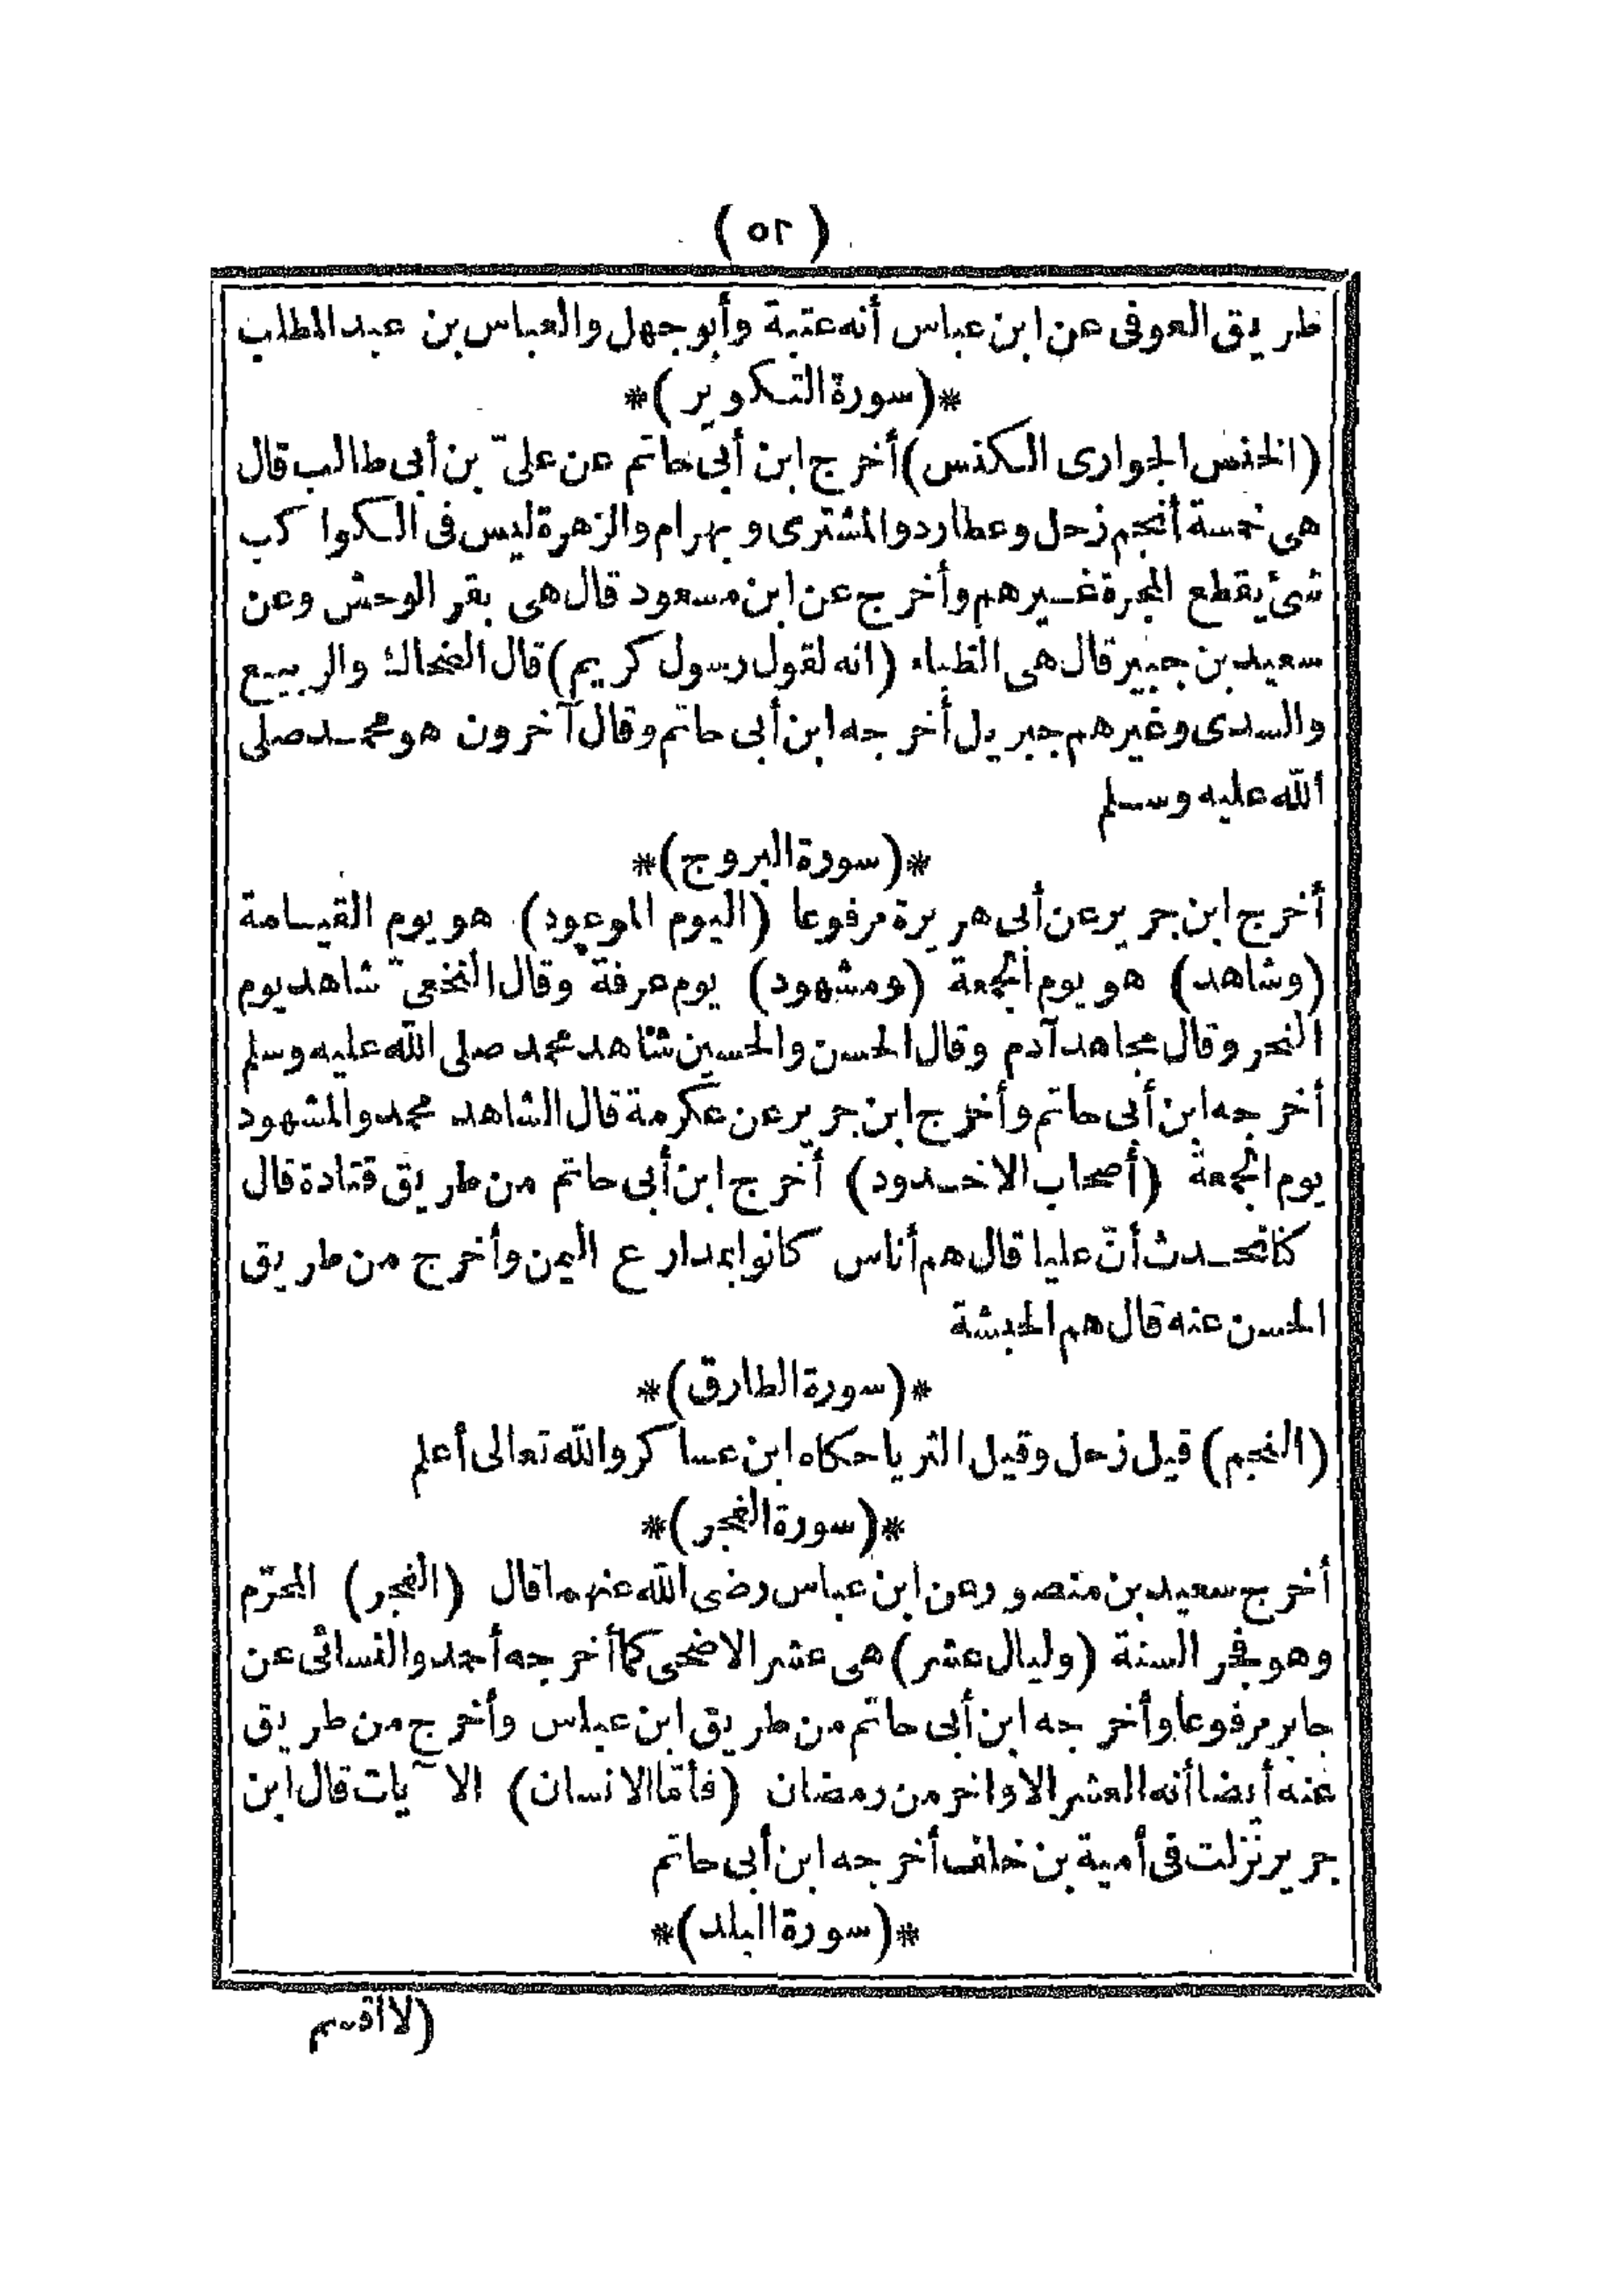 ( ٥٢ )
طريق العوفى عن ابن عباس أنه عتبة وأبو جهل والعباس بن عبد المطلب
*(سورة التكوير)*
(الخنس الجوارى الكنس) أخرج ابن أبى حاتم عن علىّ بن أبى طالب قال
هى خمسة أنجم زحل وعطارد والمشترى وبهرام والزهرة ليس فى الكواكب
شئ يقطع المجرة غيرهم وأخرج عن ابن مسعود قال هى بقر الوحش وعن
سعيد بن جبير قال هى الظباء (انه لقول رسول كريم) قال الضحاك والربيع
والسدى وغيرهم جبريل أخرجه ابن أبى حاتم وقال آخرون هو محمد صلى
الله عليه وسلم
*(سورة البروج)*
أخرج ابن جرير عن أبى هريرة مرفوعا (اليوم الموعود) هو يوم القيامة
(وشاهد) هو يوم الجمعة (ومشهود) يوم عرفة وقال النخعىّ شاهد يوم
النحر وقال مجاهد آدم وقال الحسن والحسين شاهد محمد صلى الله عليه وسلم
أخرجه ابن أبى حاتم وأخرج ابن جرير عن عكرمة قال الشاهد محمد والمشهود
يوم الجمعة (أصحاب الاخدود) أخرج ابن أبى حاتم من طريق قتادة قال
كنا نحدث أنّ عليا قال هم أناس كانوا بمدارع اليمن وأخرج من طريق
الحسن عنه قال هم الحبشة
*(سورة الطارق)*
(النجم) قيل زحل وقيل الثريا حكاه ابن عساكر والله تعالى أعلم
*(سورة الفجر)*
أخرج سعيد بن منصور عن ابن عباس رضى الله عنهما قال (الفجر) المحرّم
وهو فجر السنة (وليال عشر) هى عشر الاضحى كما أخرجه أحمد والنسائى عن
جابر مرفوعا وأخرجه ابن أبى حاتم من طريق ابن عباس وأخرج من طريق
عنه أيضا أنه العشر الاواخر من رمضان (فأمّا الانسان) الآيات قال ابن
جرير نزلت فى أمية بن خلف أخرجه ابن أبى حاتم
*(سورة البلد)*
(لا أقسم